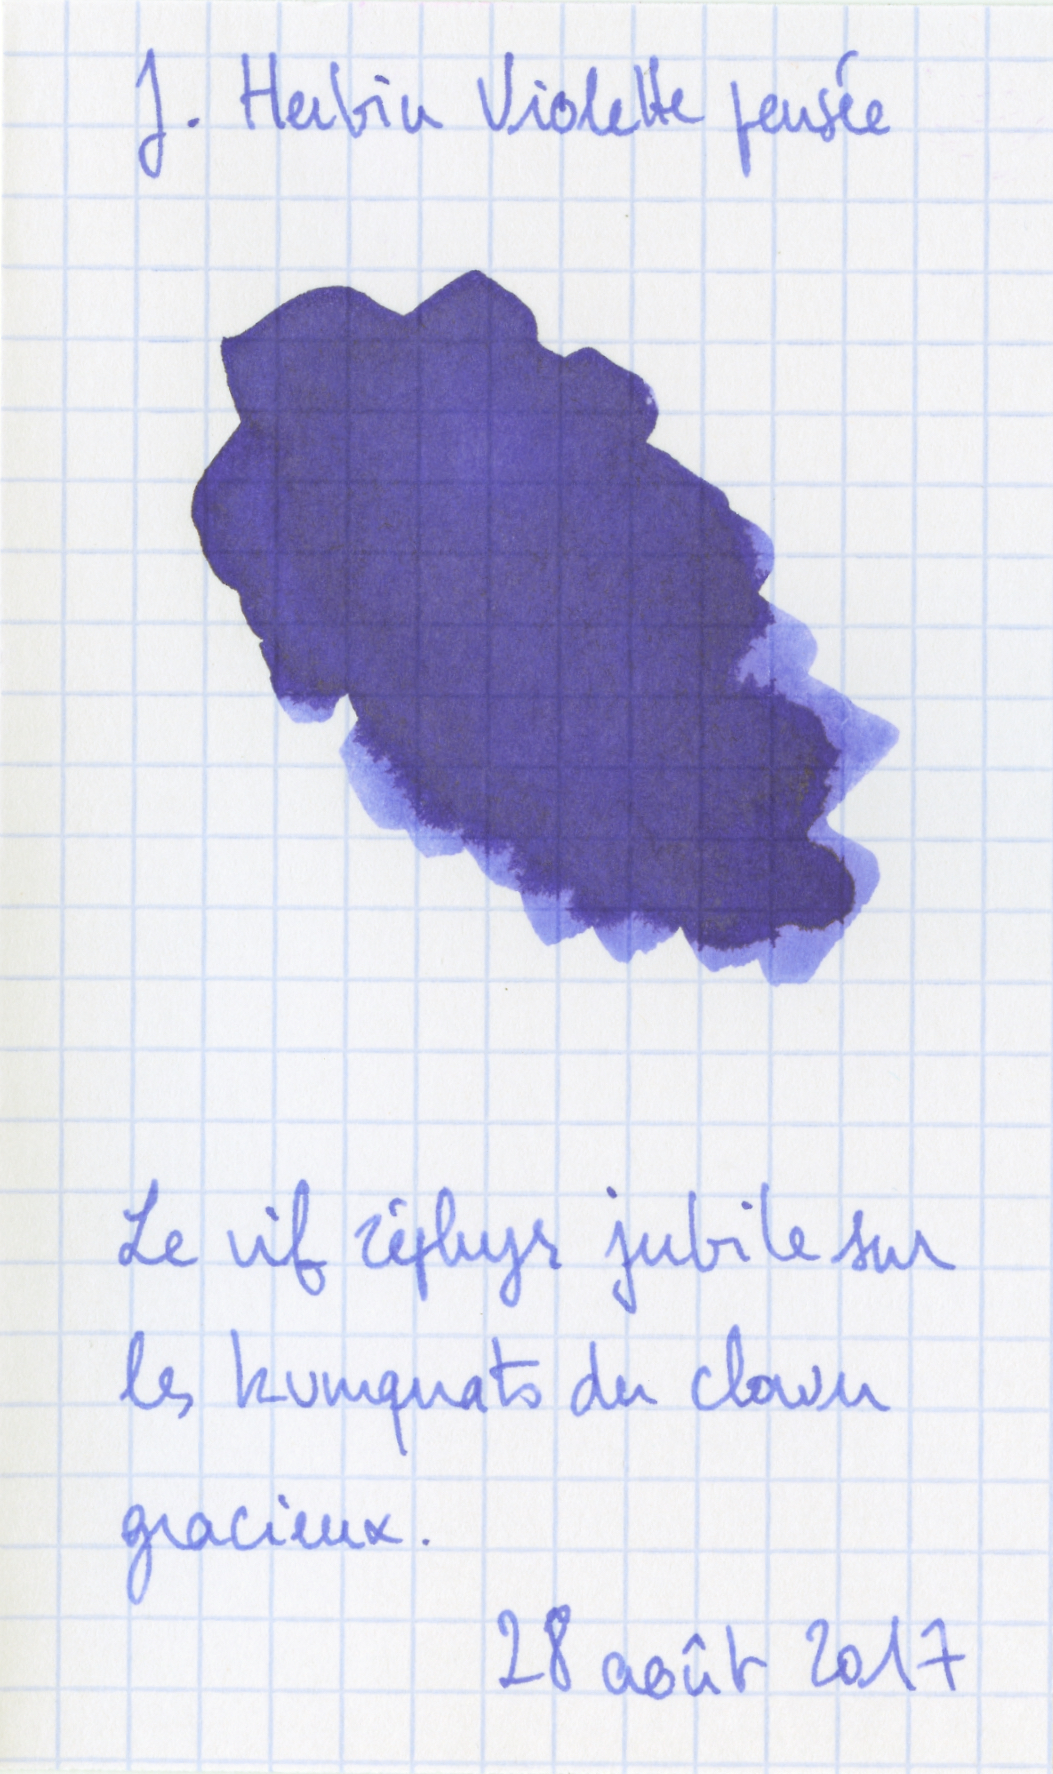 J. Herbin Violette pensée
Le vif zéphyr jubile sur
les kumquats du clown
gracieux.
28 août 2017